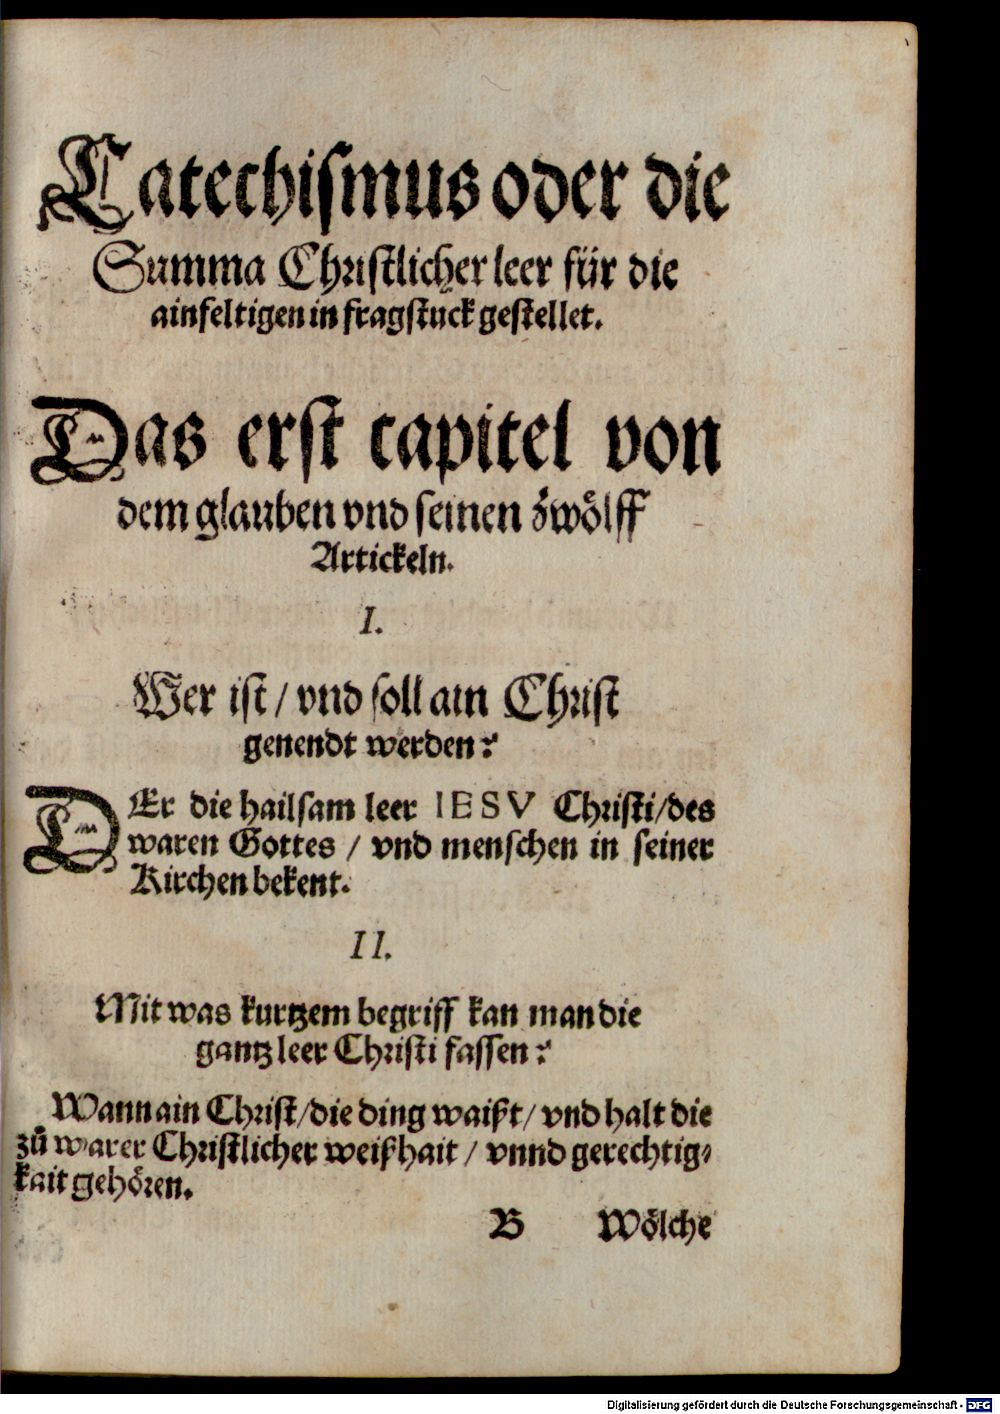 Catechismus oder die
Summa Christlicher leer für die
ainfeltigen in fragstuck gestellet.
Das erst capitel von
dem glauben vnd seinen zwölff
Artickeln.
I.
Wer ist / vnd soll ain Christ
genendt werden?
DEr die hailsam leer IESV Christi/des
waren Gottes / vnd menschen in seiner
Kirchen bekent.
II.
Mit was kurtzem begriff kan man die
gantz leer Christi fassen?
Wann ain Christ/die ding waißt/ vnd halt die
zů warer Christlicher weißhait / vnnd gerechtig⸗
kait gehören.
B Wölche
Digitalisierung gefördert durch die Deutsche Forschungsgemeinschaft - DFG